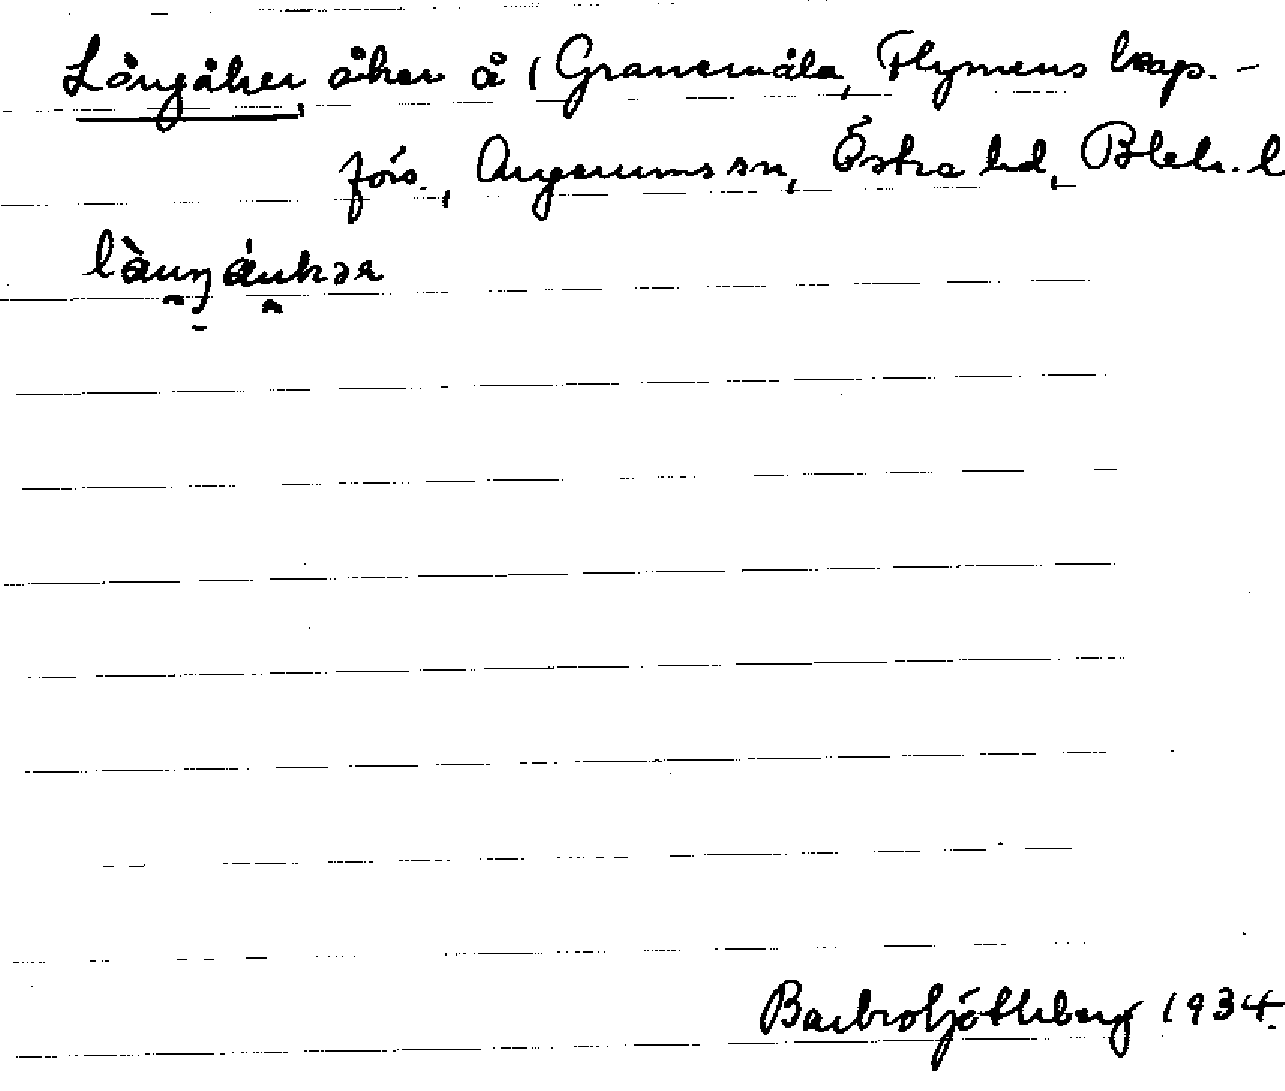 Långåker, åker å 1 Granemåla, Flymens kap. -
förs., Augerums sn, Östra hd, Blek. l
làuŋáukər
1934.